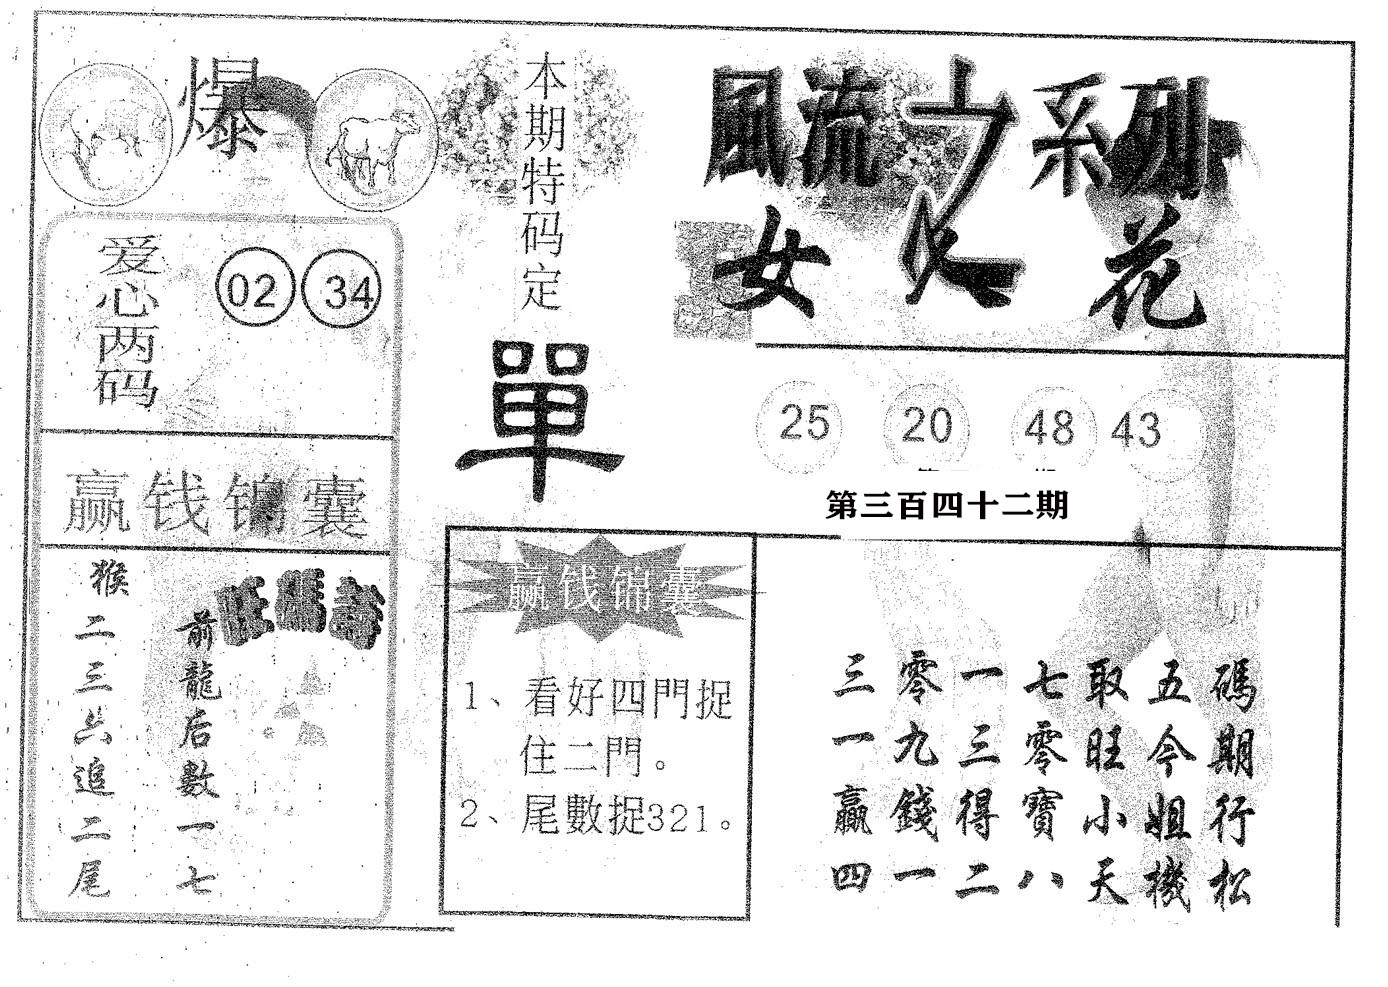 爆
爱心两码
02 34
赢钱锦囊
猴二三六追二尾
前龍后數一七
本期特码定
單
赢钱锦囊
1、看好四門捉
住二門。
2、尾數捉321。
風流之系列
女人花
25 20 48 43
第三百四十二期
三零一七取五碼
一九三零旺今期
贏錢得寶小姐行
四一二八天機松